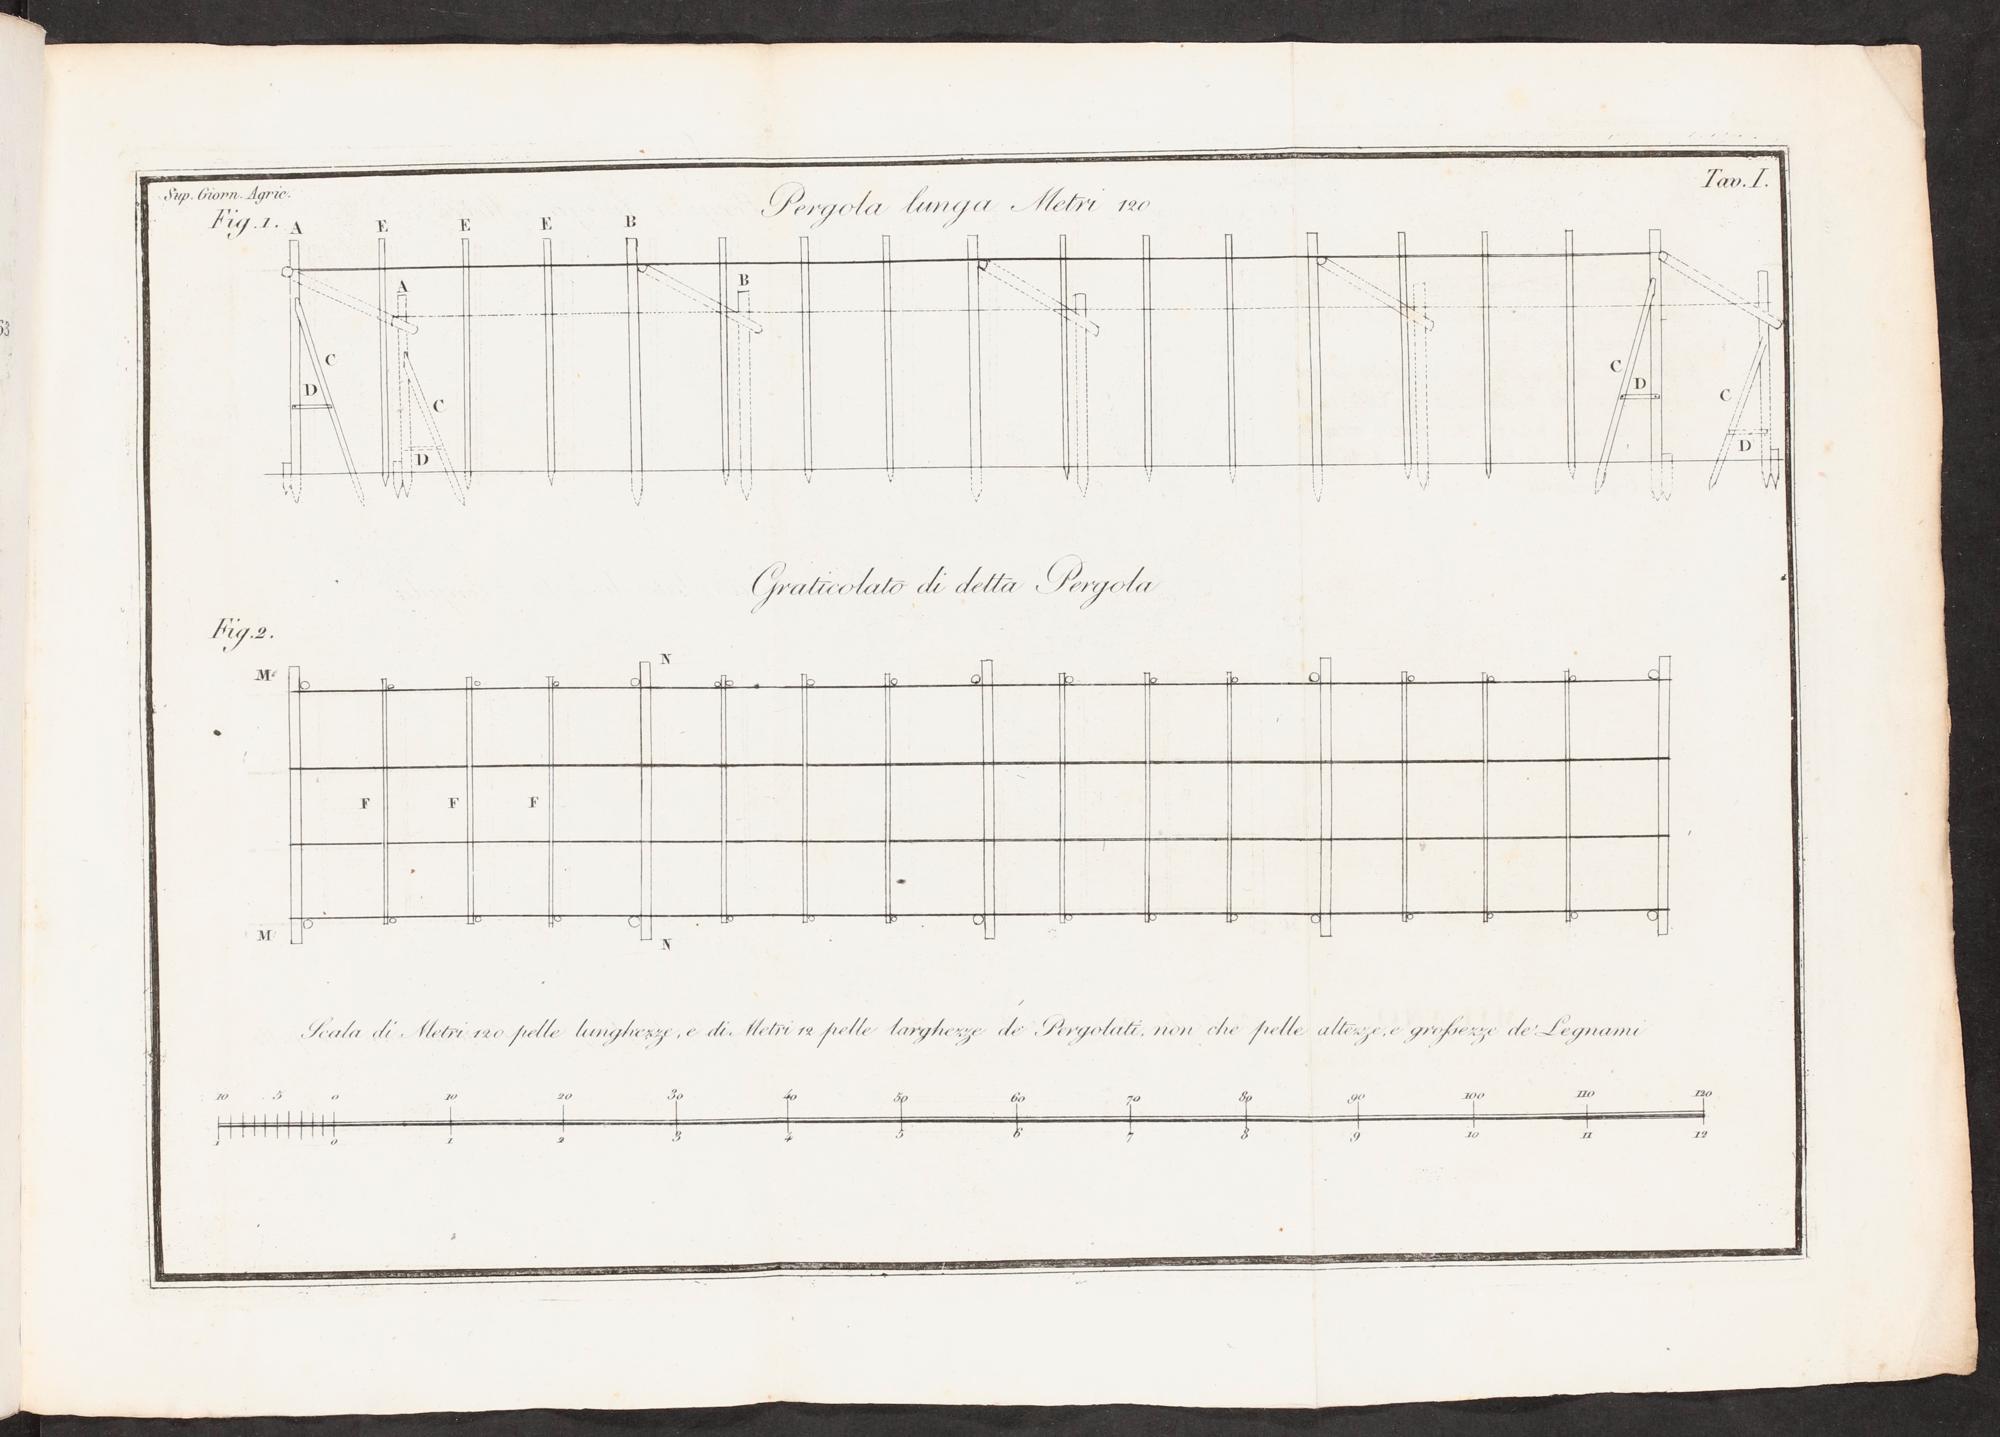 Sup. Giorn. Agric.
Tav. I.
Pergola lunga Metri 120
Fig. 1.
A E E E B
A B
C D C D
C D C D
Graticolato di detta Pergola
Fig. 2.
M N
F F F
M N
Scala di Metri 120 pelle lunghezze, e di Metri 12 pelle larghezze de' Pergolati, non che pelle altezze, e grossezze de' Legnami
10 5 0 10 20 30 40 50 60 70 80 90 100 110 120
1 0 1 2 3 4 5 6 7 8 9 10 11 12